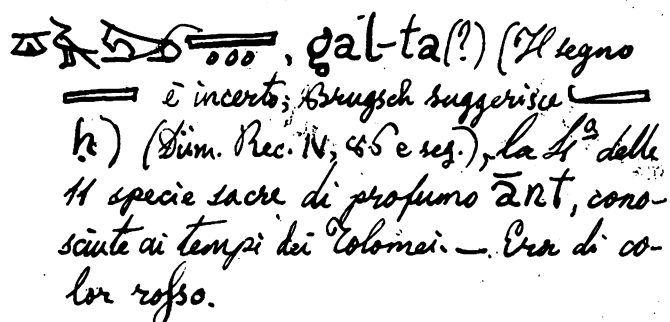 , gal-ta(?) (Il segno
è incerto; Brugsch suggerisce
h) (Düm. Rec. IV, 85 e seg.), la 4ª delle
11 specie sacre di profumo ānt, cono-
sciute ai tempi dei Tolomei. — Era di co-
lor rosso.